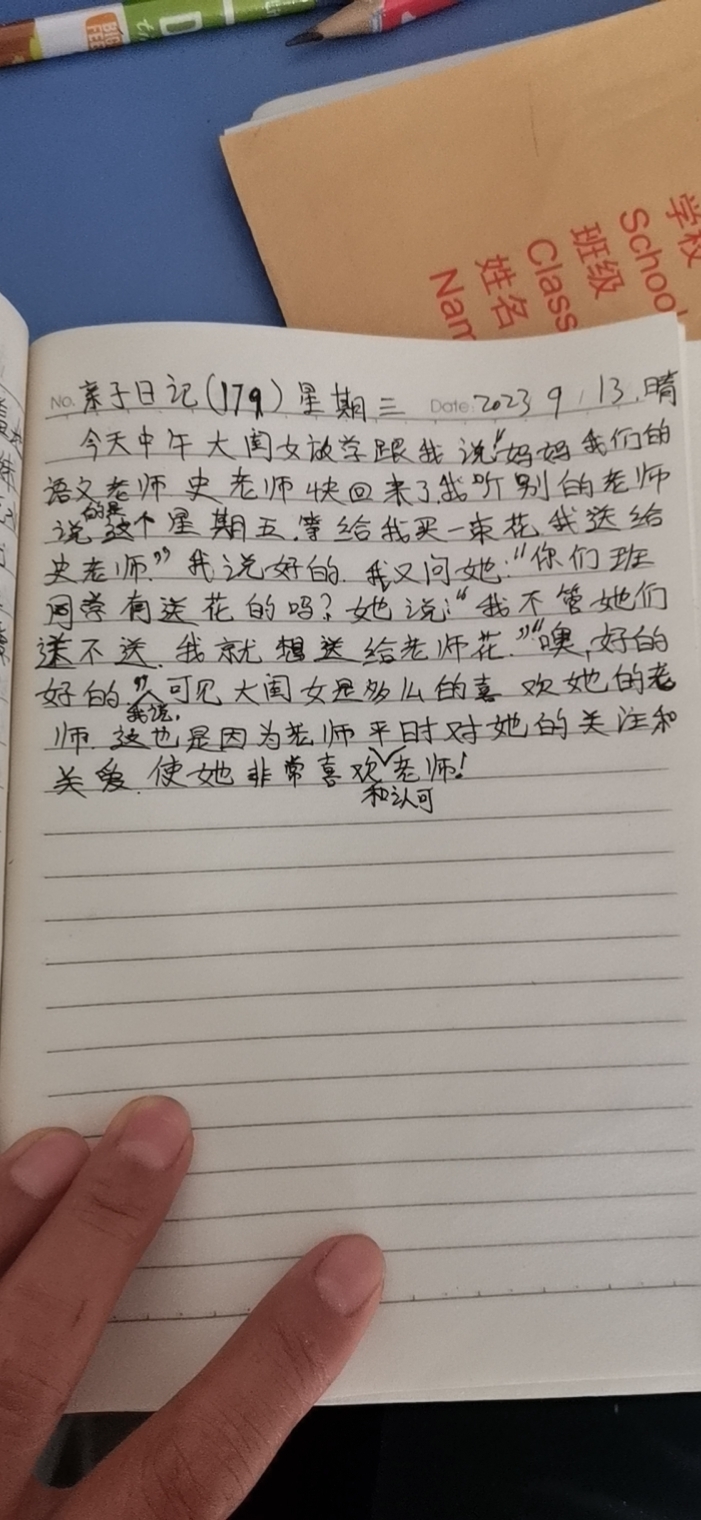 BIG
FEE
学校
School
班级
Class
姓名
Nam
No. 亲子日记(179)星期三 Date 2023 9 / 13. 晴
今天中午大闺女放学跟我说“妈妈我们的
语文老师史老师快回来了,我听别的老师
说的是这个星期五.等给我买一束花,我送给
史老师.”我说好的.我又问她:“你们班
同学有送花的吗?她说:“我不管她们
送不送.我就想送给老师花.”“噢,好的
好的”我说,可见大闺女是多么的喜欢她的老
师.这也是因为老师平时对她的关注和
关爱.使她非常喜欢和认可老师!